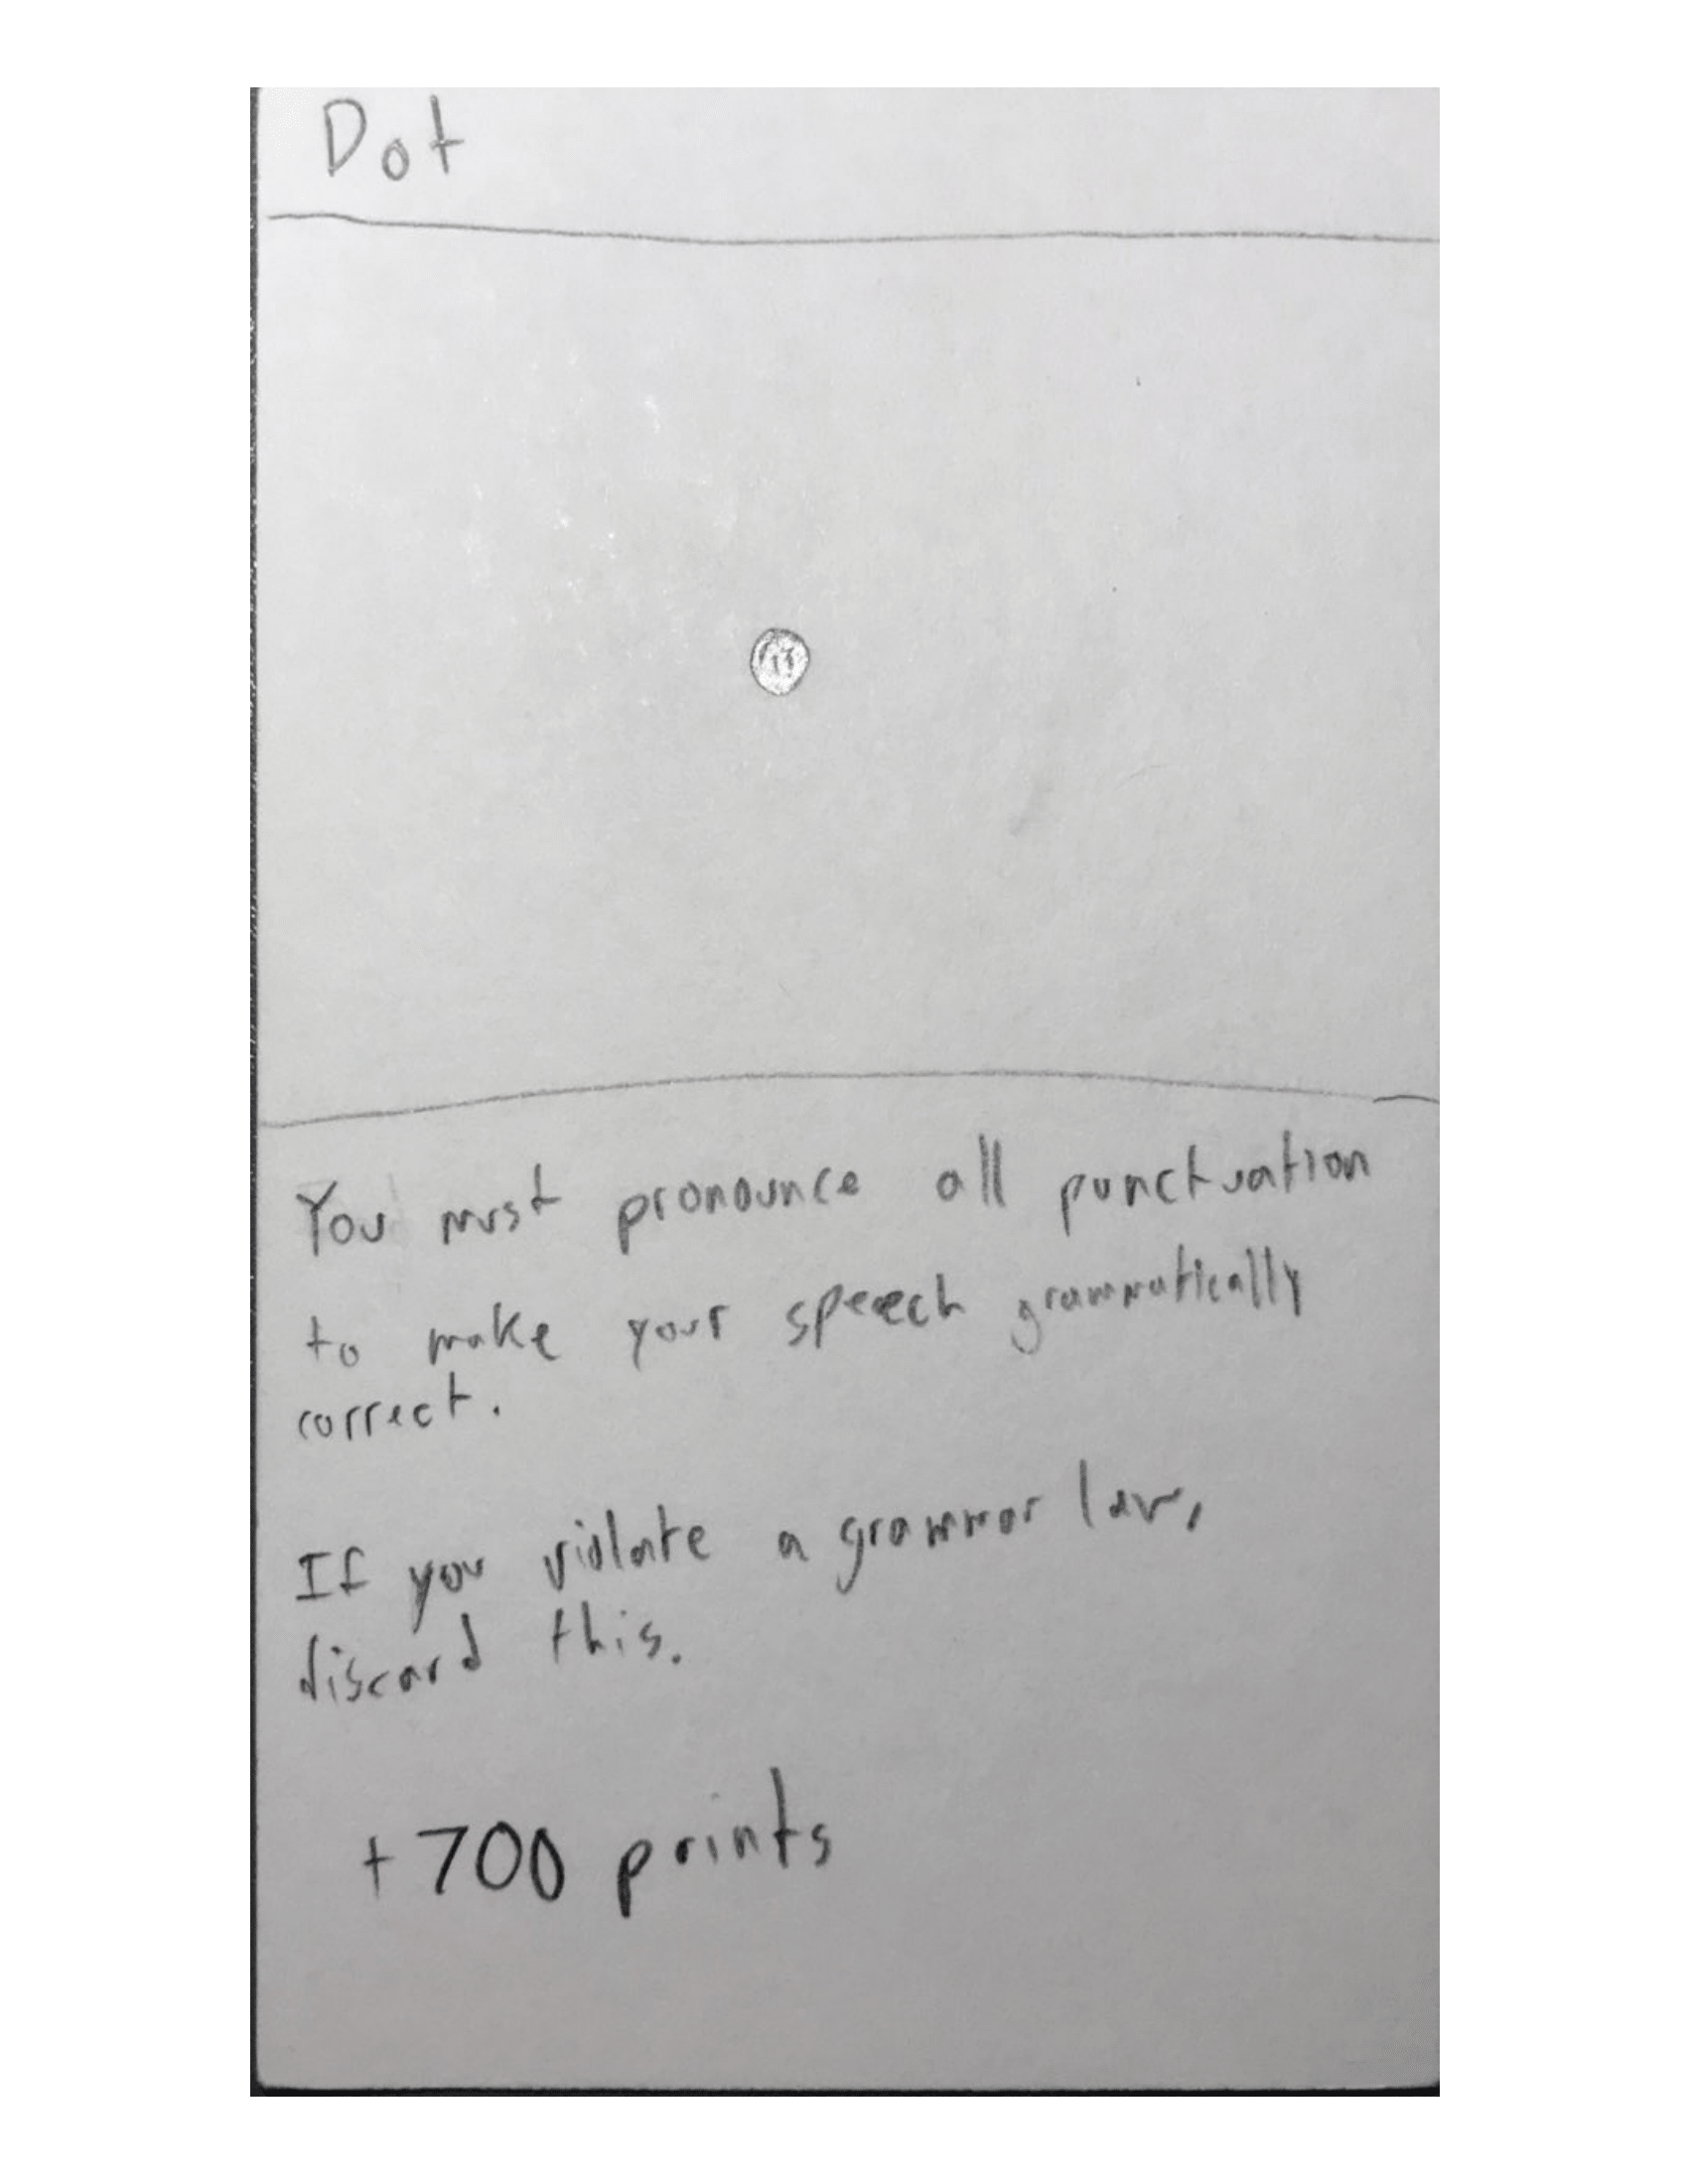 Dot
You must pronounce all punctuation
to make your speech grammatically
correct.
If you violate a grammar law,
discard this.
+700 points